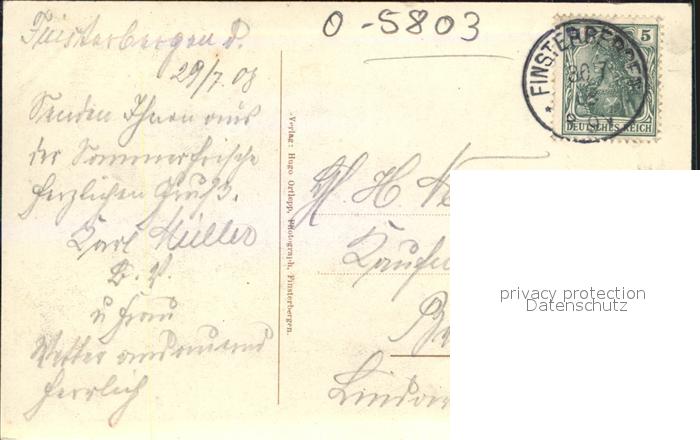 O-5803
Finsterbergen d.
29/7.08
Senden Ihnen aus
der Sommerfrische
herzlichen Gruß.
Karl Müller
u Frau
Wetter andauernd
herrlich
Verlag: Hugo Ortlepp, Photograph, Finsterbergen.
FINSTERBERGEN
5
DEUTSCHES REICH
H. H.
privacy protection
Datenschutz